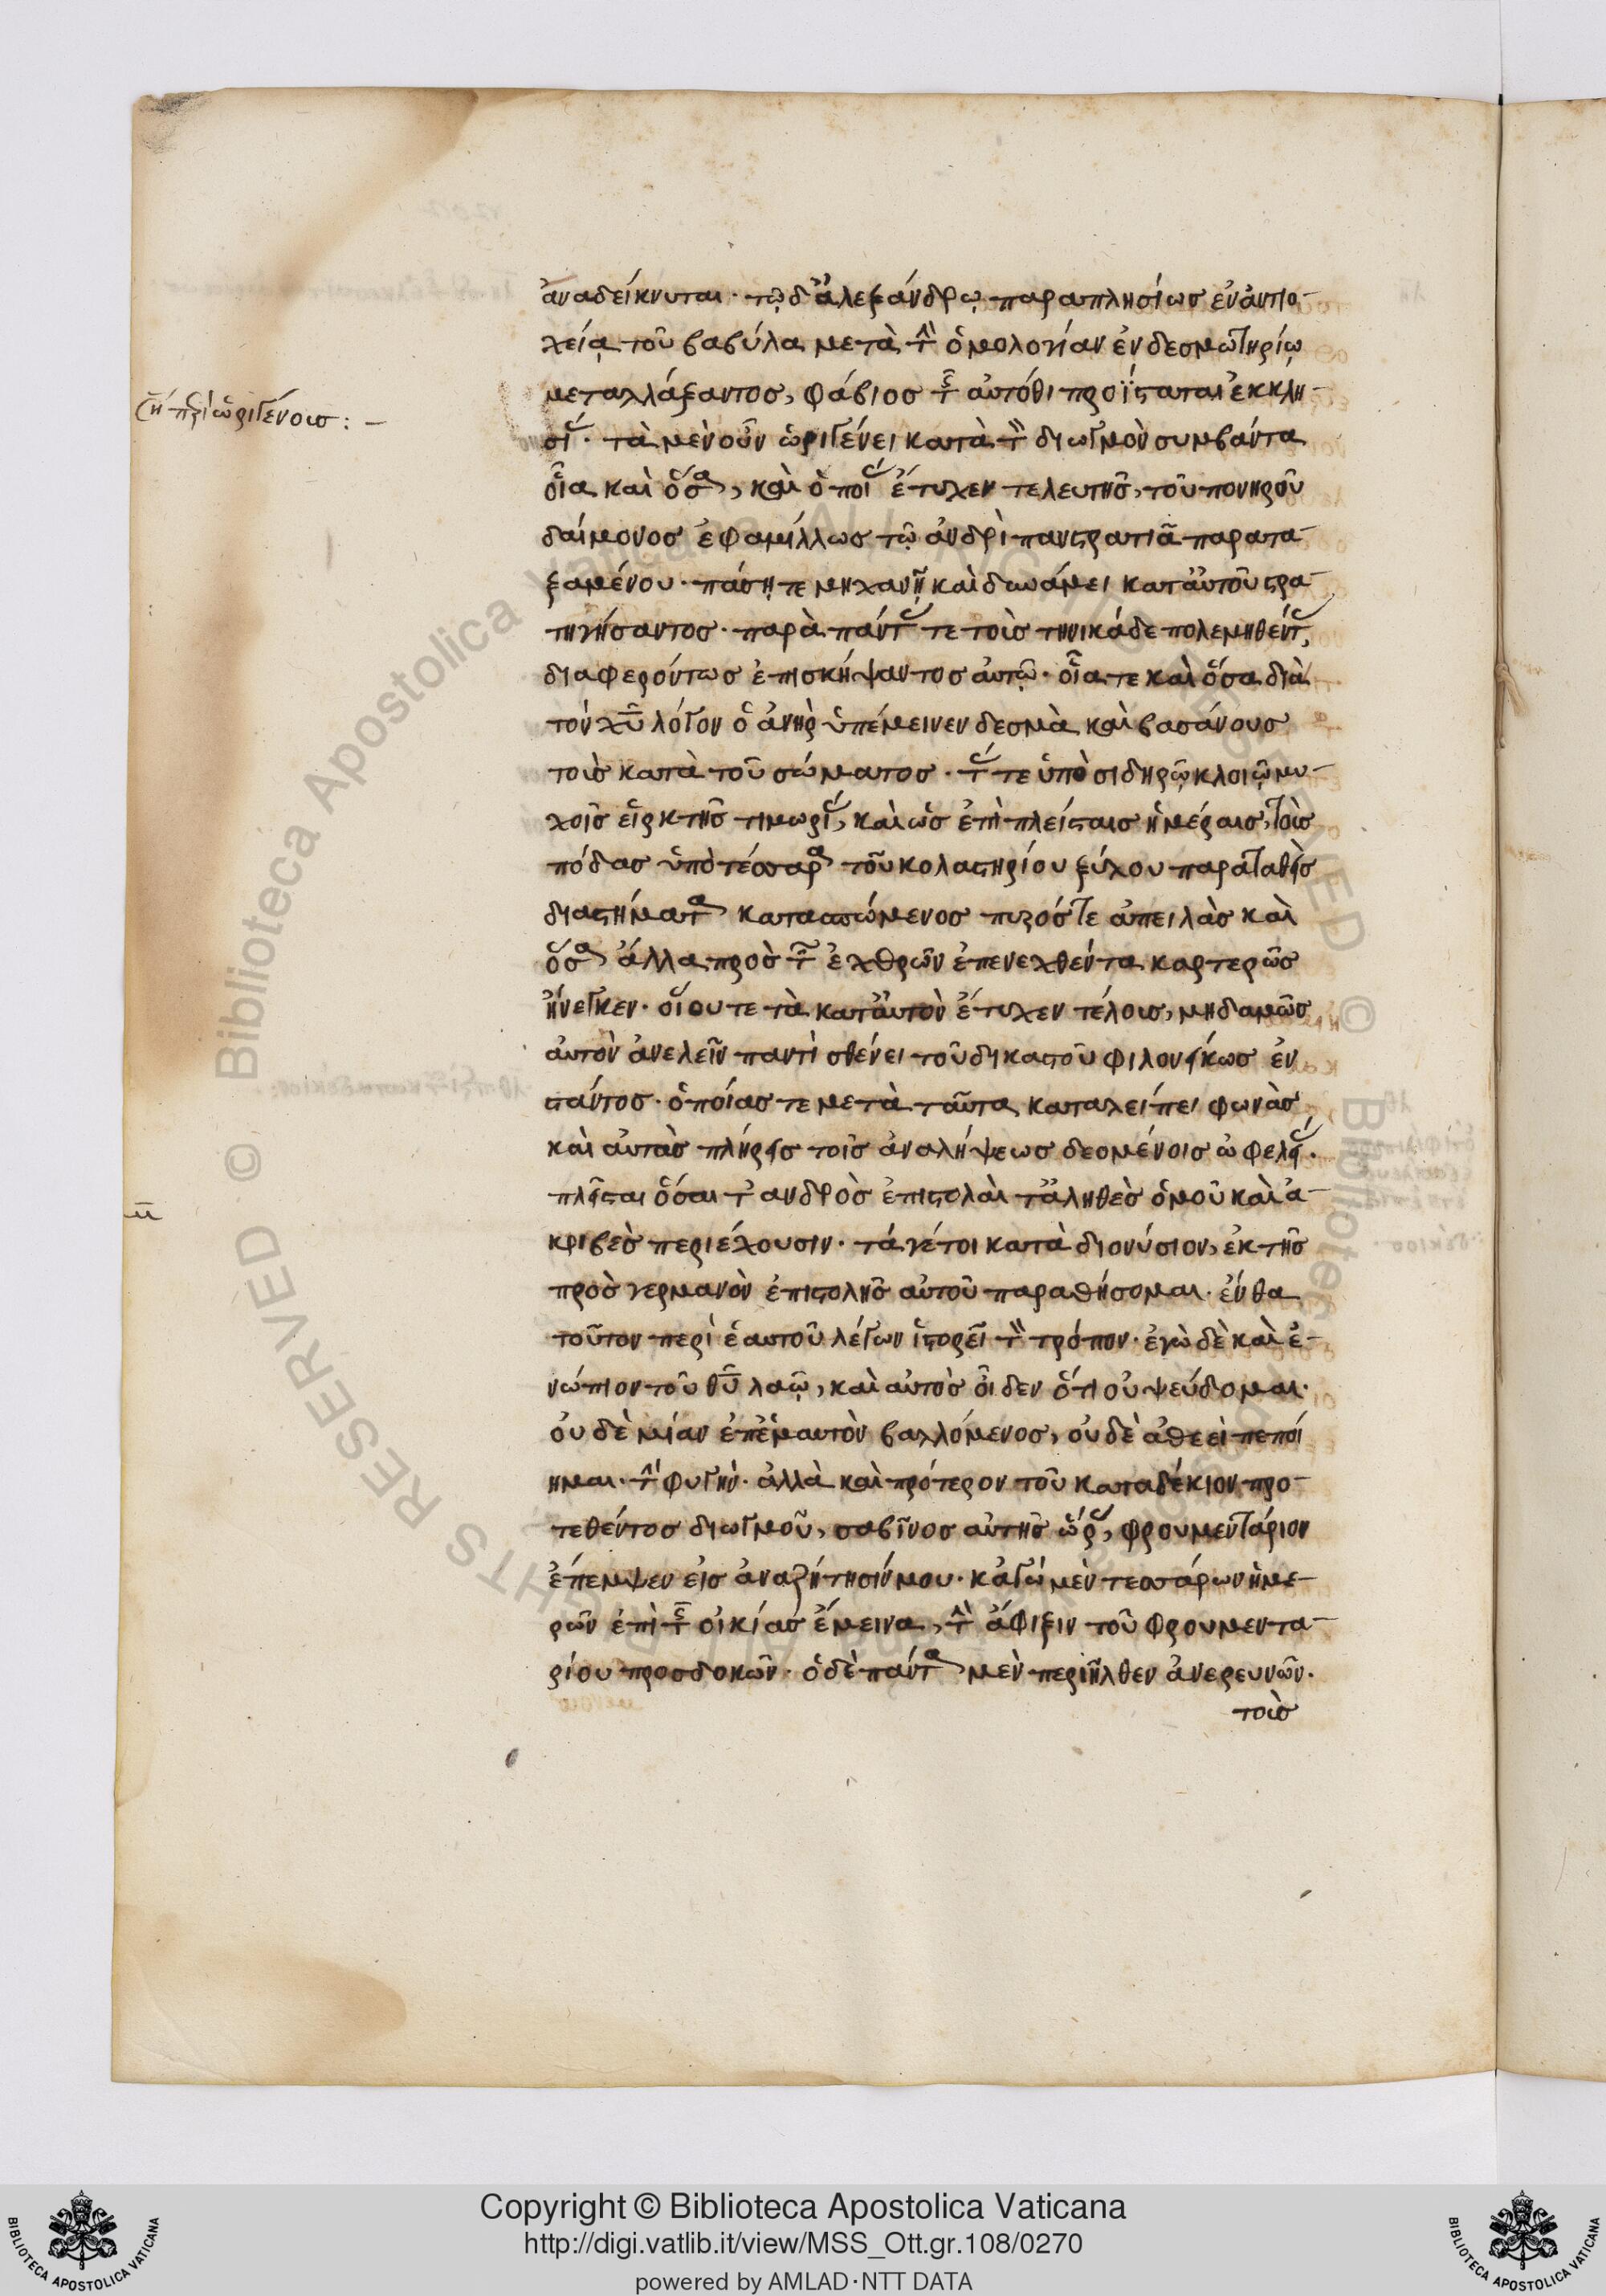 ἀναδείκνυται· τῷ δ' ἀλεξάνδρῳ παραπλησίως ἐν ἀντιο-
χείᾳ τοῦ βαβύλα μετὰ τ ὁμολογίαν ἐν δεσμωτηρίῳ
μεταλλάξαντος, φάβιος τ αὐτόθι προΐσταται ἐκκλη-
περὶ ὠριγένους:-
σι· τὰ μὲν οὖν ὠριγένει κατὰ τ διωγμὸν συμβάντα
οἷα καὶ ὅσα, καὶ ὁποι ἔτυχεν τελευτῆς, τοῦ πονηροῦ
δαίμονος ἐφαμίλλως τῷ ἀνδρὶ πανστρατιᾶ παραπα-
ξαμένου· πάσῃ τε μηχανῇ καὶ δυνάμει κατ' αὐτοῦ στρα-
τηγήσαντος· παρὰ πάντ τε τοὺς τηνικάδε πολεμηθέντ,
διαφερόντως ἐπισκήψαντος αὐτῷ· οἷα τε καὶ ὅσα διὰ
τὸν χῦ λόγον ὁ ἀνὴρ ὑπέμεινεν δεσμὰ καὶ βασάνους
τοὺς κατὰ τοῦ σώματος· τ τε ὑπὸ σιδηρῷ κλοιῷ μυ-
χοῖς εἱρκτῆς τιμωρι, καὶ ὡς ἐπὶ πλείσταις ἡμέραις, τοὺς
πόδας ὑπὸ τέσσαρα τοῦ κολαστηρίου ξύλου παραταθεὶς
διαστήματα κατασπώμενος πυρός τε ἀπειλὰς καὶ
ὅσα ἄλλα πρὸς τ ἐχθρῶν ἐπενεχθέντα καρτερῶς
ἤνεγκεν· οἵου τε τὰ κατ' αὐτὸν ἔτυχεν τέλους, μηδαμῶς
αὐτὸν ἀνελεῖν παντὶ σθένει τοῦ δικαστοῦ φιλονείκως ἐν
στάντος· ὁποίας τε μετὰ ταῦτα καταλείπει φωνὰς
καὶ αὐτὰς πλήρεις τοῖς ἀναλήψεως δεομένοις ὠφελεί·
πλεῖσται ὅσαι τ ανδρὸς ἐπιστολαὶ τἀληθὲς ὁμοῦ καὶ ἀ-
κριβὲς περιέχουσιν· τά γέ τοι κατὰ διονύσιον, ἐκ τῆς
μ
πρὸς γερμανὸν ἐπιστολῆς αὐτοῦ παραθήσομαι· ἔνθα
τοῦτον περὶ ἑαυτοῦ λέγων ἱστορεῖ τ τρόπον· ἐγὼ δὲ καὶ ἐ-
νώπιον τοῦ θῦ λαῶ, καὶ αὐτὸς οἶδεν ὅτι οὐ ψεύδομαι·
οὐδὲ μίαν ἐπ' ἐμαυτὸν βαλλόμενος, οὐδὲ ἀθεεὶ πεποί
ημαι· τ φυγήν· ἀλλὰ καὶ πρότερον τοῦ κατα δέκιον προ-
τεθέντος διωγμοῦ, σαβῖνος αὐτῆς ὥρ, φρουμεντάριον
ἔπεμψεν εἰς ἀναζήτησίν μου· κἀγὼ μὲν τεσσάρων ἡμε-
ρῶν ἐπὶ τ οἰκίας ἔμεινα, τ ἄφιξιν τοῦ φρουμεντα-
ρίου προσδοκῶν· ὁ δὲ πάντα μὲν περιῆλθεν ἀνερευνῶν·
τοὺς
Copyright © Biblioteca Apostolica Vaticana
http://digi.vatlib.it/view/MSS_Ott.gr.108/0270
powered by AMLAD·NTT DATA